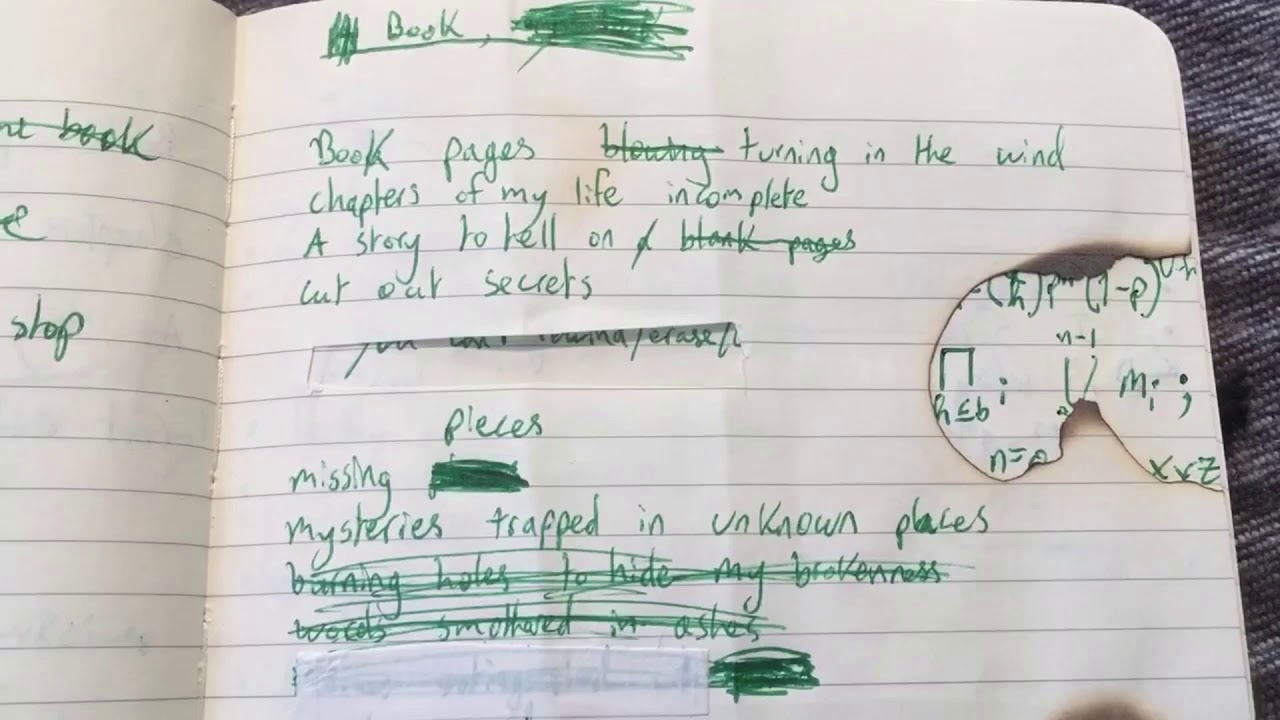 book
e
stop
Book,
Book pages blowing turning in the wind
chapters of my life incomplete
A story to tell on blank pages
cut out secrets
pieces
missing
mysteries trapped in unknown places
burning holes to hide my brokenness
words smothered in ashes
(1-p)
n-1
∏ i mi ;
h≤b
n=0
x y z